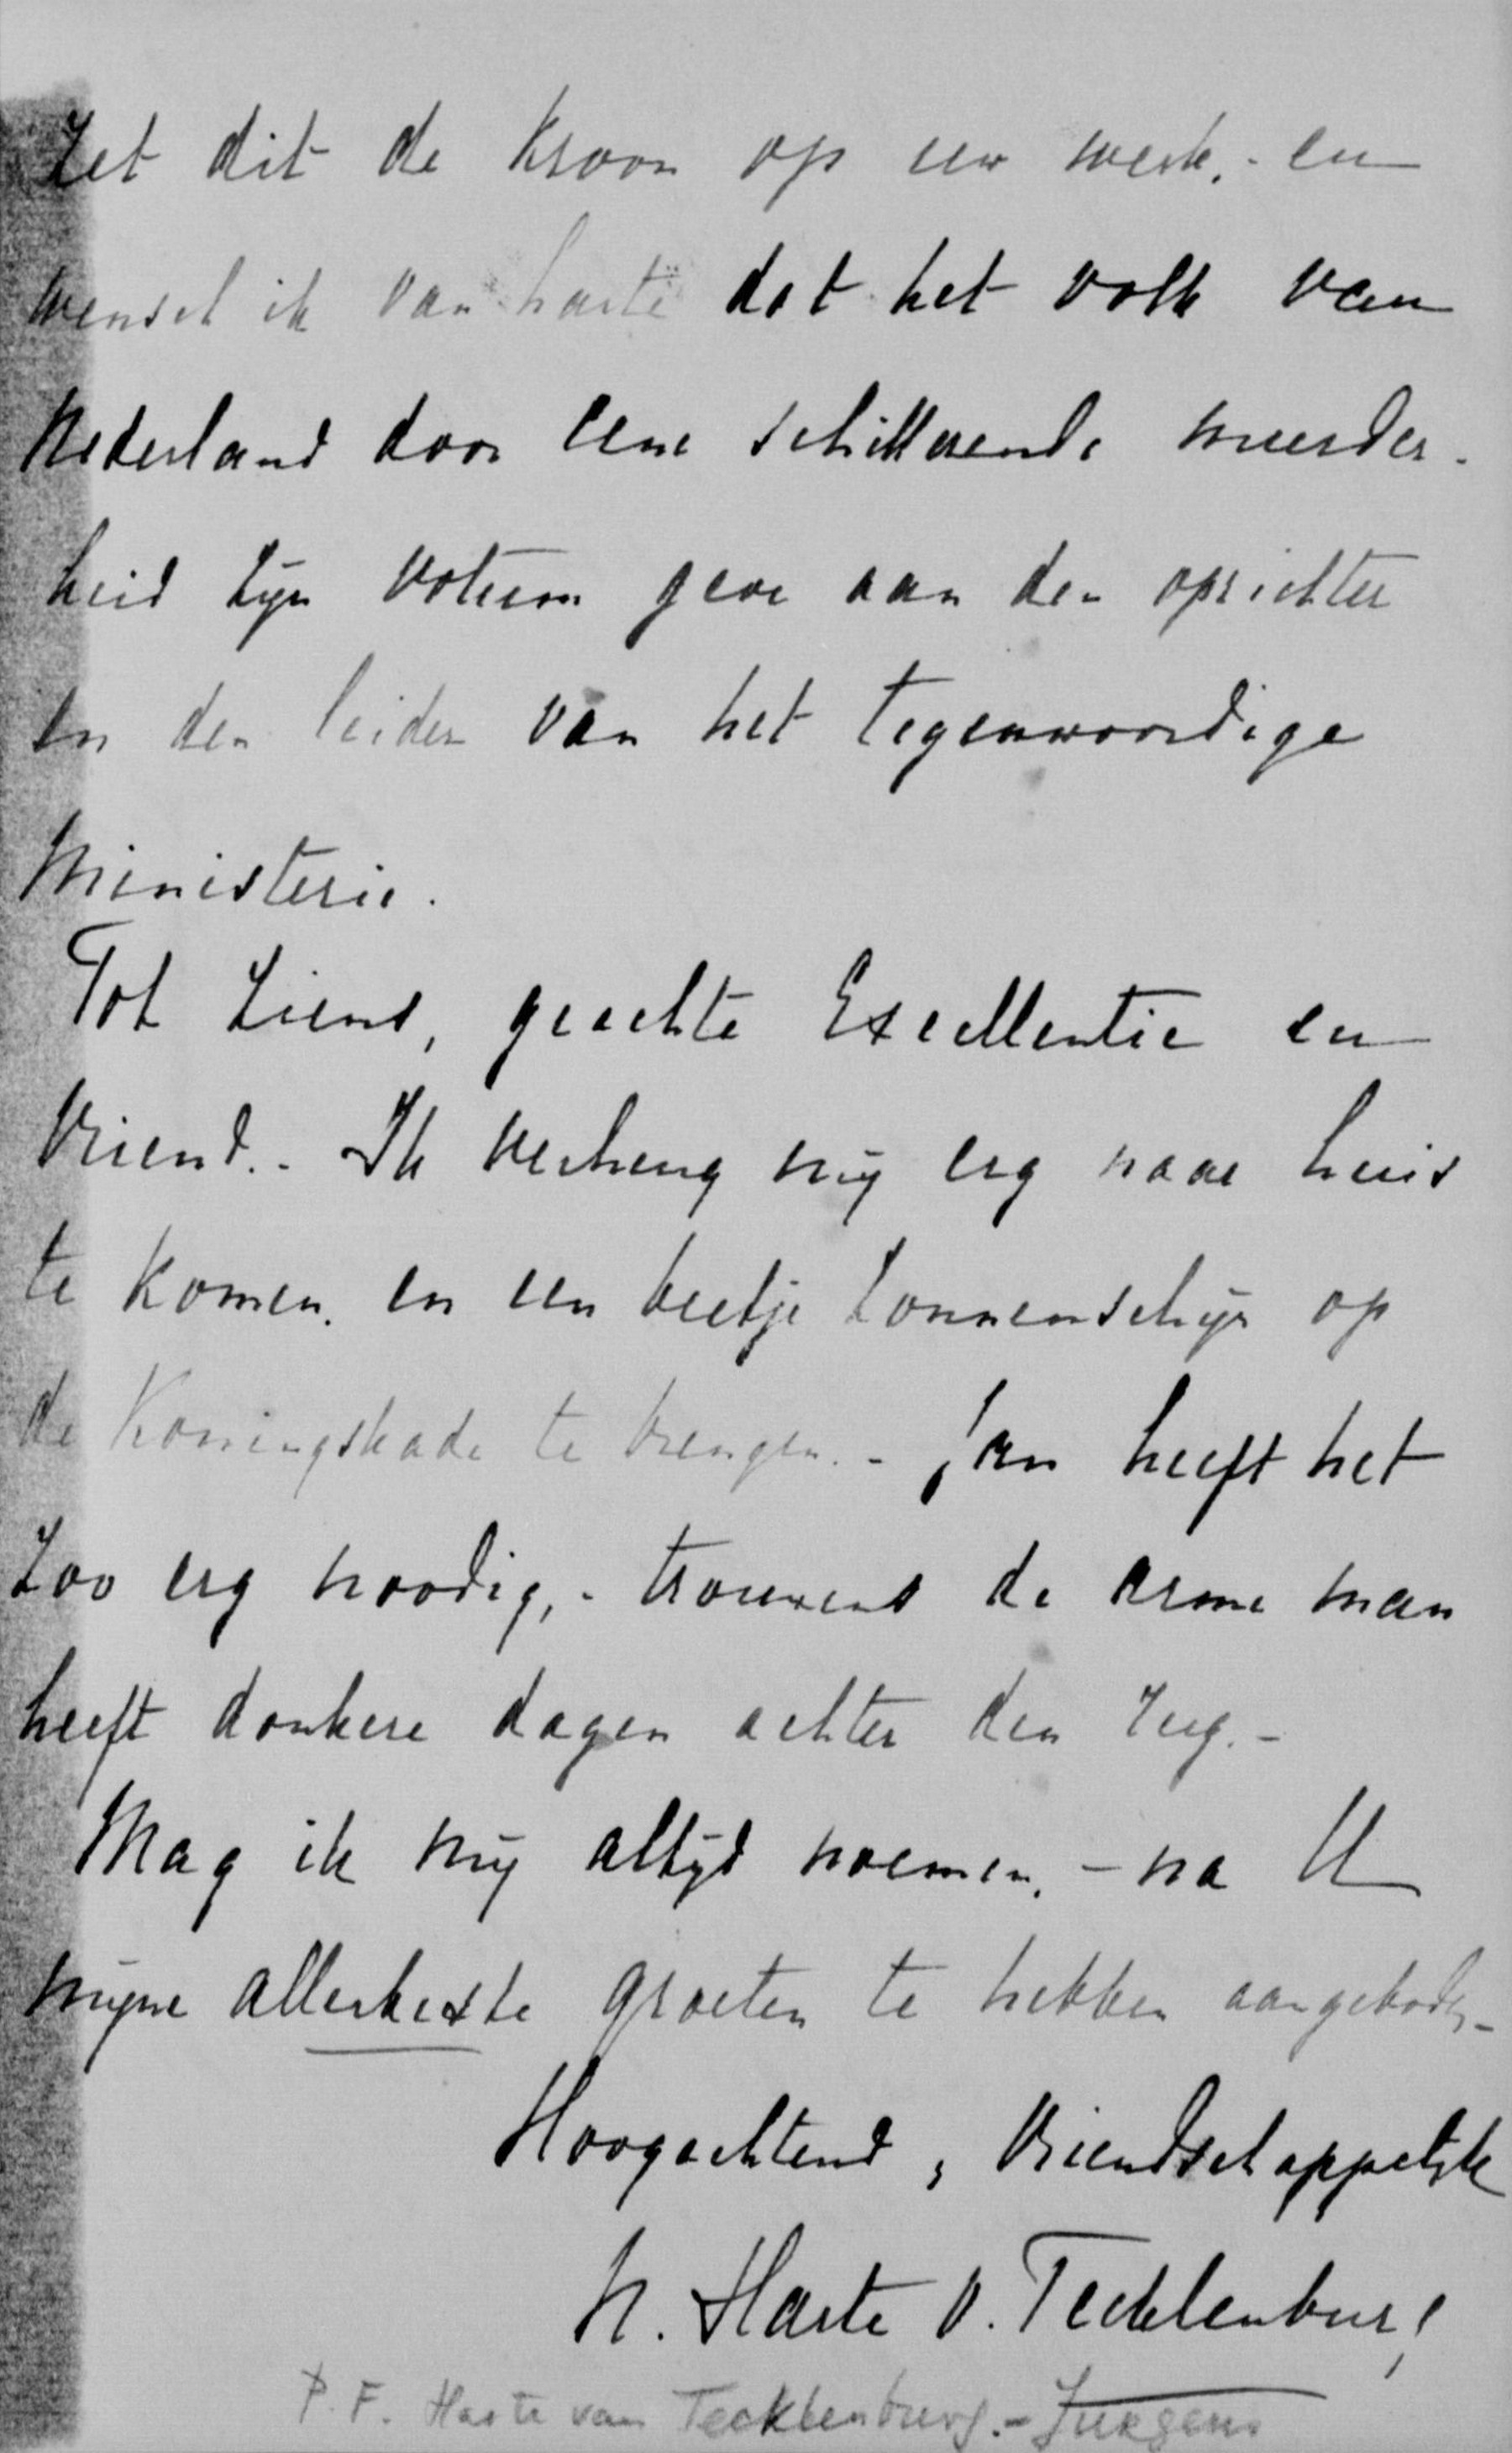 Zet dit de kroon op uw werk,- en
wensch ik van harte dat het volk van
Nederland door eene schitterende meerder-
heid zijn votum geve aan den oprichter
en den leider van het tegenwoordige
Ministerie.
Tot ziens, geachte Excellentie en
Vriend.- Ik verheug mij erg naar huis
te komen, en een beetje zonnenschijn op
de Koningskade te brengen.- Jan heeft het
zoo erg noodig,- trouwens de arme man
heeft donkere dagen achter den rug.-
Mag ik mij altijd noemen,- na U
mijne allerbeste groeten te hebben aangeboden-
Hoogachtend, Vriendschappelijk
N. Harte v. Tecklenburg
P. F. Harte van Tecklenburg.- Jurgens